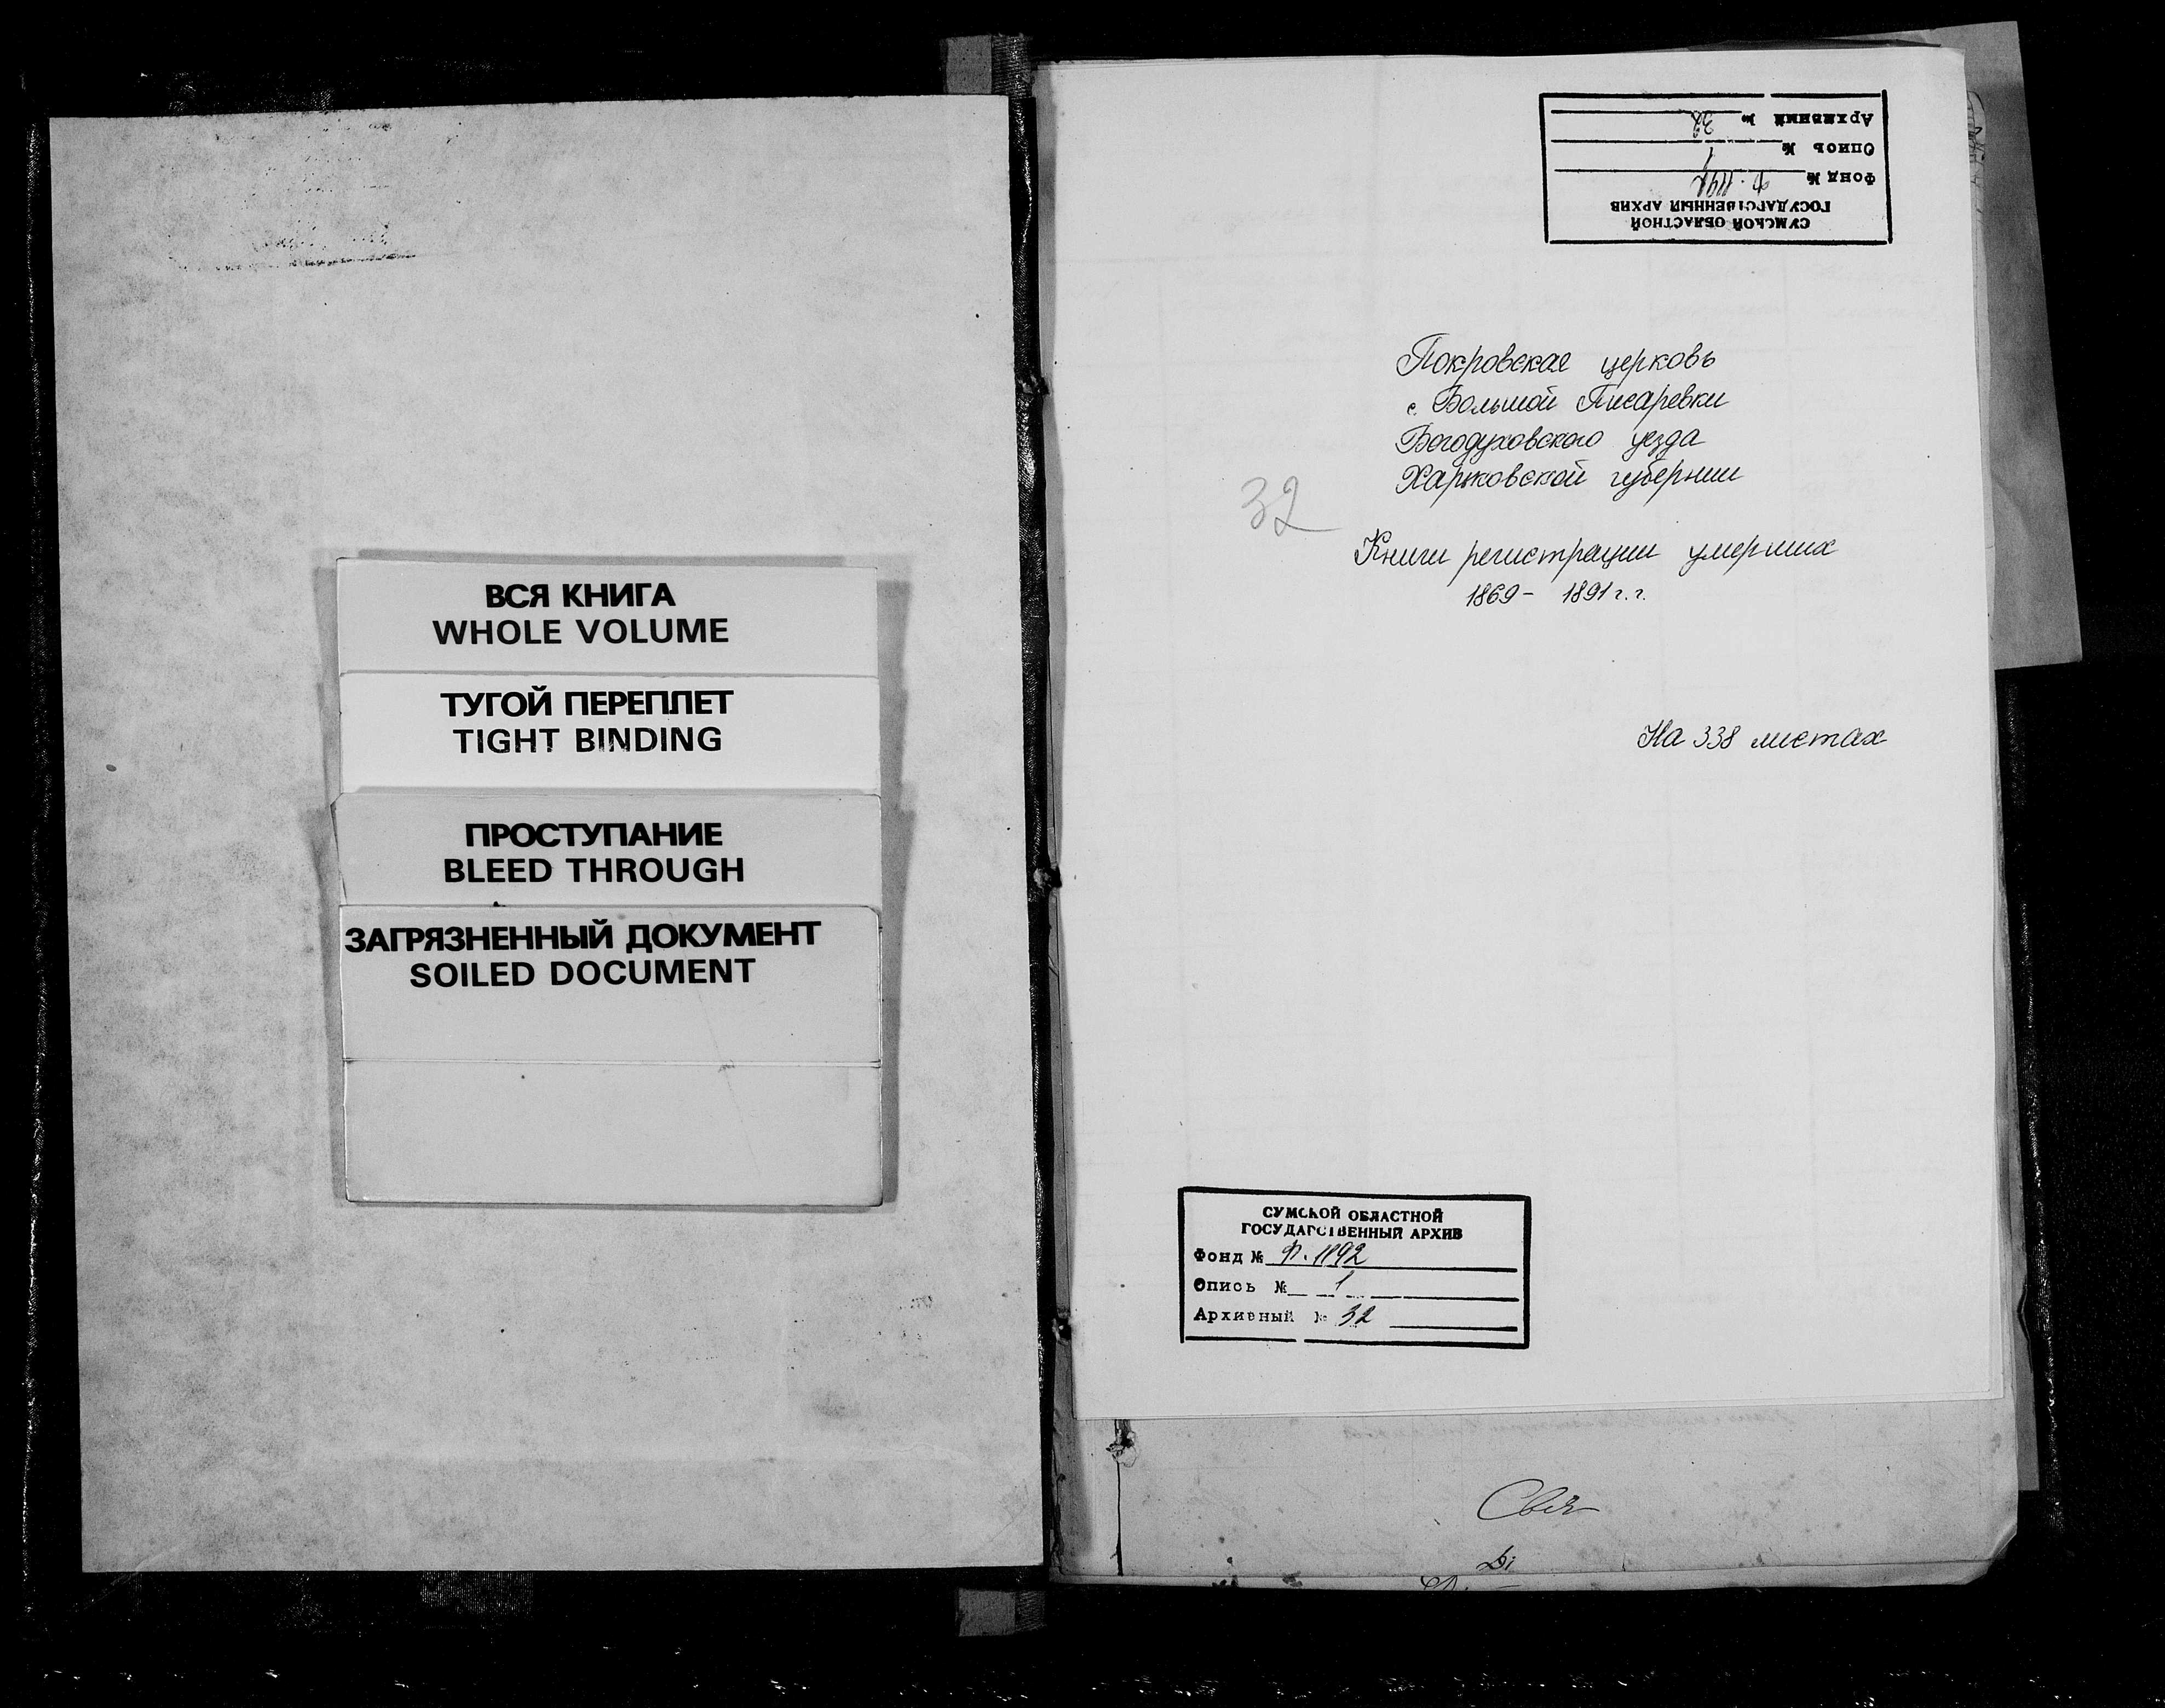 ВСЯ КНИГА
WHOLE VOLUME
ТУГОЙ ПЕРЕПЛЕТ
TIGHT BINDING
ПРОСТУПАНИЕ
BLEED THROUGH
ЗАГРЯЗНЕННЫЙ ДОКУМЕНТ
SOILED DOCUMENT
СУМСКОЙ ОБЛАСТНОЙ
ГОСУДАРСТВЕННЫЙ АРХИВ
Фонд № Ф. 1192
Опись № 1
Архивный № 32
Покровская церковь
с. Большой Писаревки
Богодуховского уезда
Харьковской губернии
32
Книги регистрации умерших
1869 - 1891 г. г.
На 338 листах
СУМСКОЙ ОБЛАСТНОЙ
ГОСУДАРСТВЕННЫЙ АРХИВ
Фонд № Ф. 1192
Опись № 1
Архивный № 32